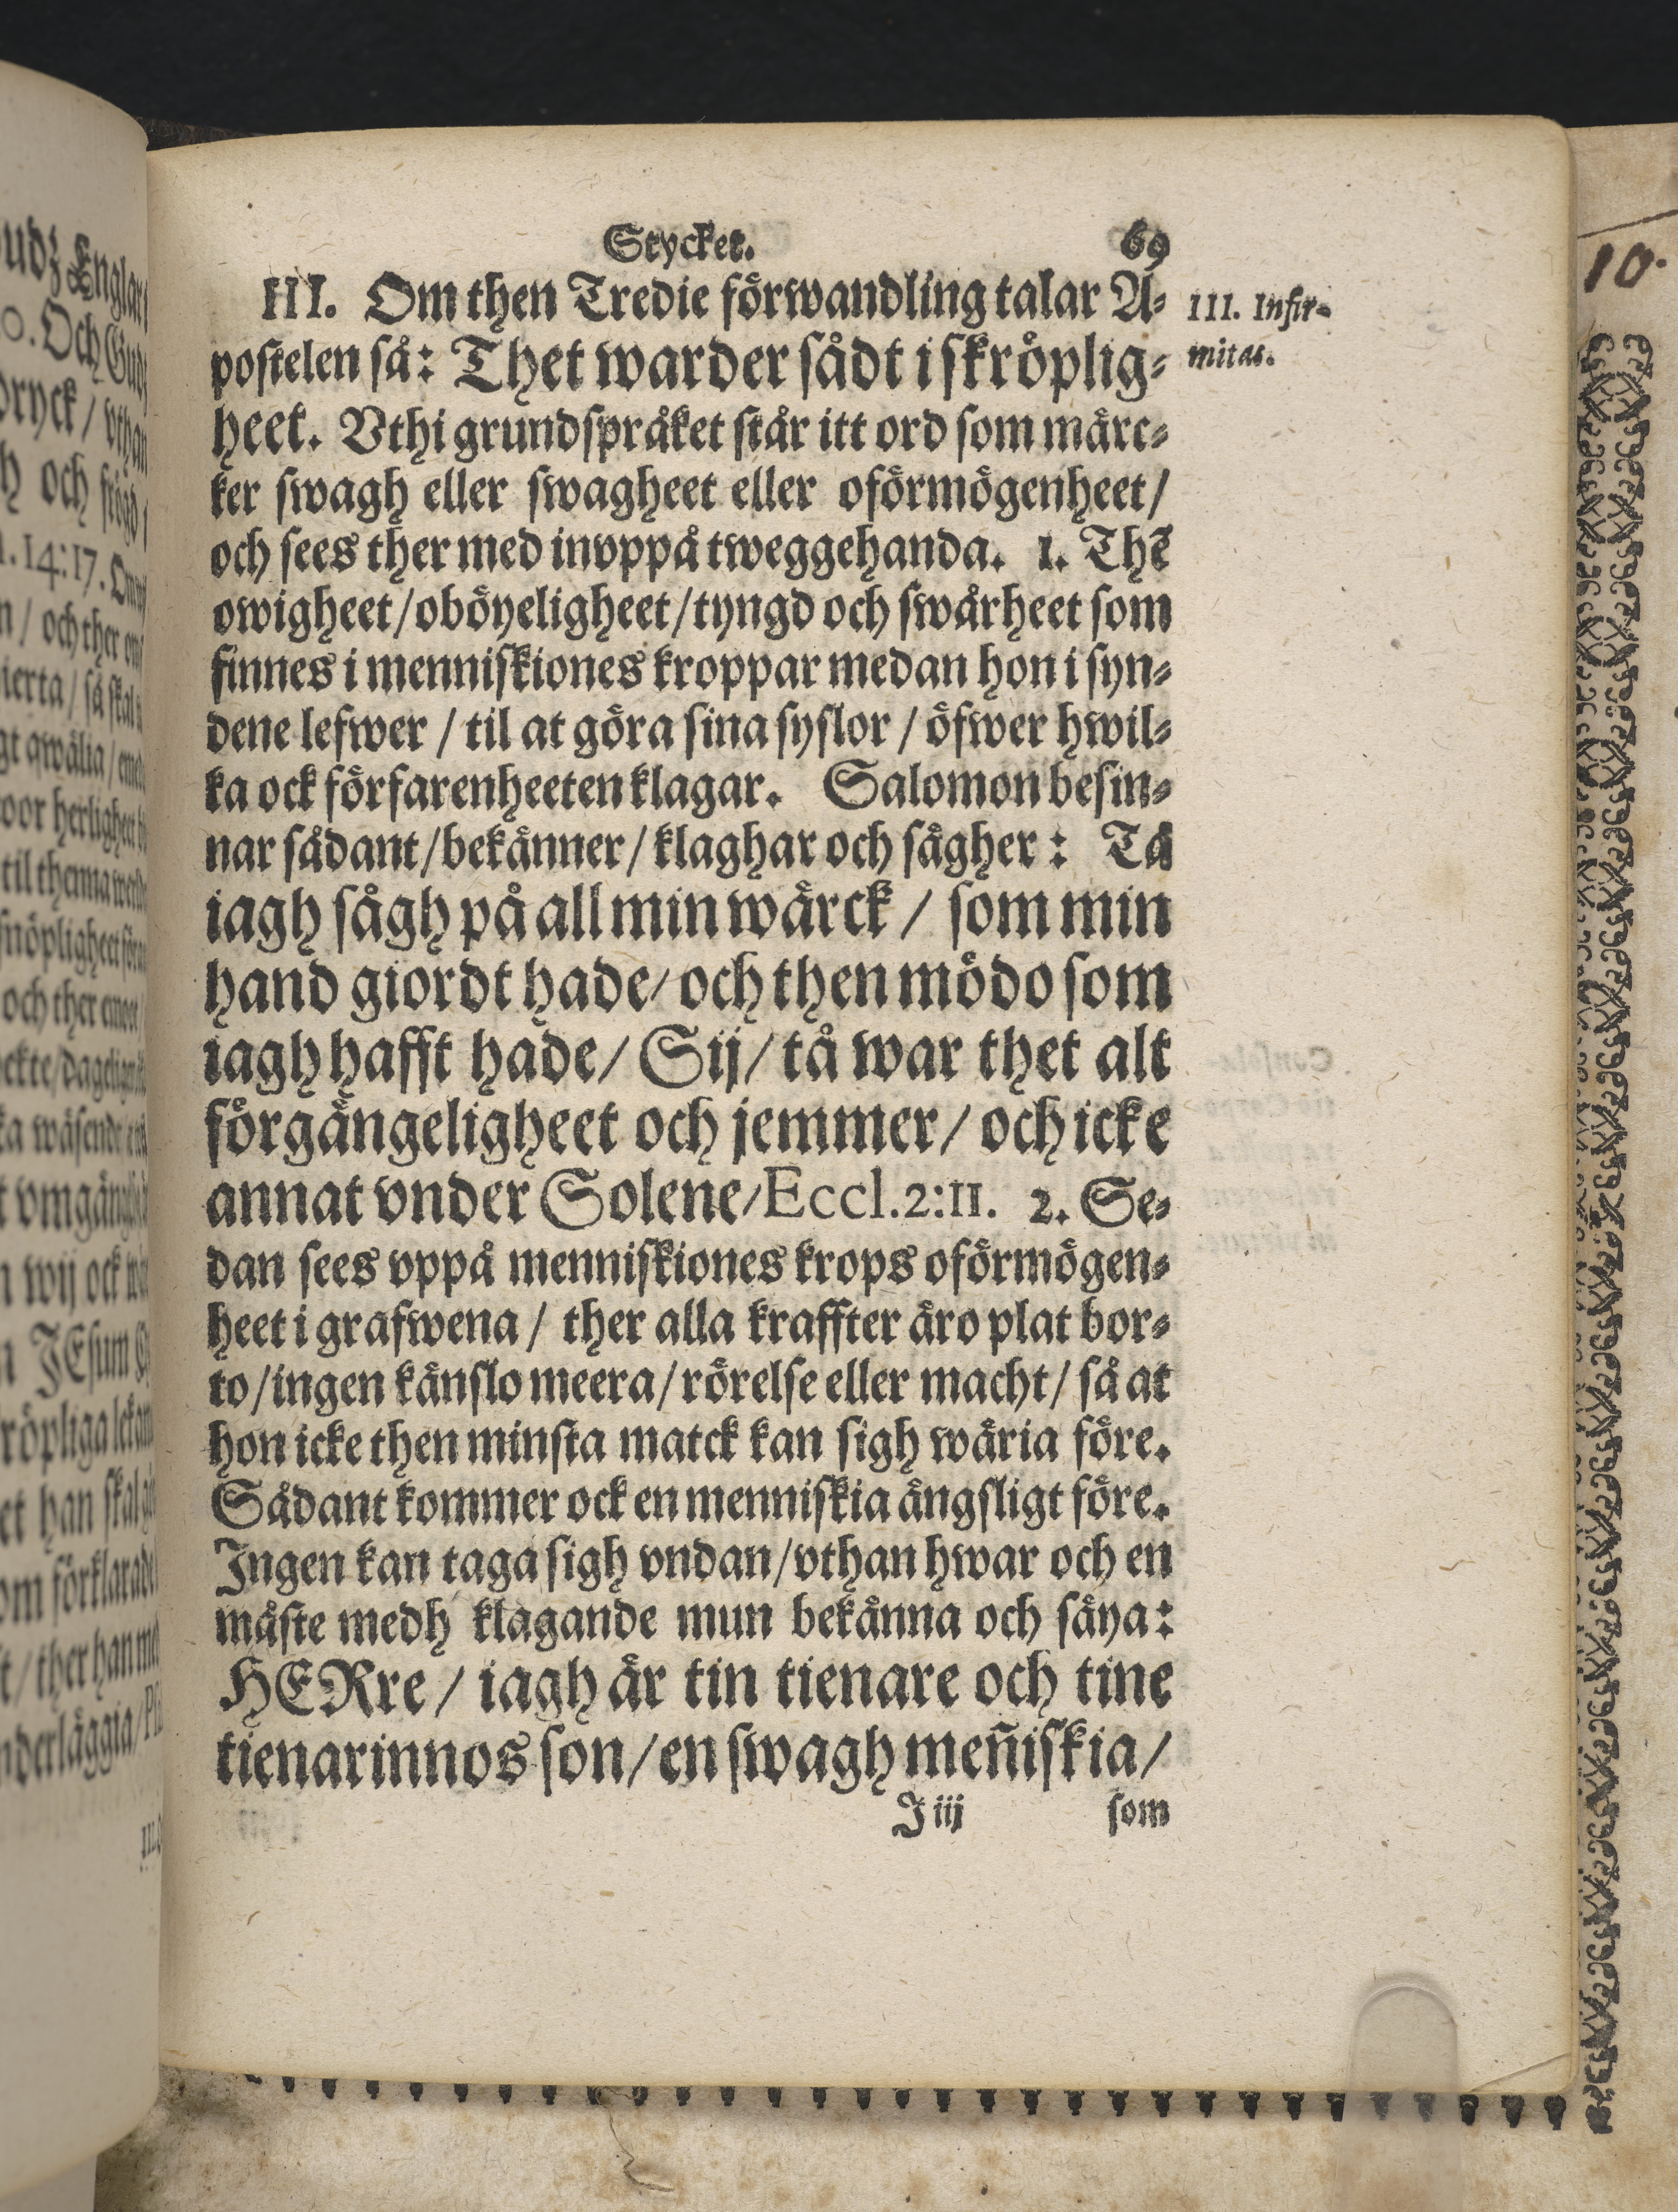 Stycket. 69
III. Om then Tredie förwandling talar A-
postelen så: Thet warder sådt i skröplig-
heet. Vthi grundspråket står itt ord som märc-
ker swagh eller swagheet eller oförmögenheet/
och sees ther med invppå tweggehanda. 1. Thē
owigheet/oböyeligheet/tyngd och swårheet som
finnes i menniskiones kroppar medan hon i syn-
dene lefwer / til at göra sina syslor / öfwer hwil-
ka ock förfarenheeten klagar. Salomon besin-
nar sådant/bekänner/klaghar och sägher: Tå
iagh sågh på all min wärck / som min
hand giordt hade/och then mödo som
iagh hafft hade/Sij/tå war thet alt
förgängeligheet och jemmer/och icke
annat vnder Solene/Eccl.2:11. 2. Se-
dan sees vppå menniskiones krops oförmögen-
heet i grafwena / ther alla kraffter äro plat bor-
to/ingen känslo meera/rörelse eller macht/så at
hon icke then minsta matck kan sigh wäria före.
Sådant kommer ock en menniskia ängsligt före.
Ingen kan taga sigh vndan/vthan hwar och en
måste medh klagande mun bekänna och säya:
HERre / iagh är tin tienare och tine
tienarinnos son/en swagh meñiskia/
J iij som
III. Infir-
mitas.
10.